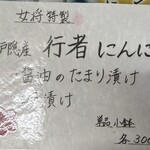 女将特製
戸隠産 行者にんに
醤油のたまり漬け
漬け
単品小鉢
各300